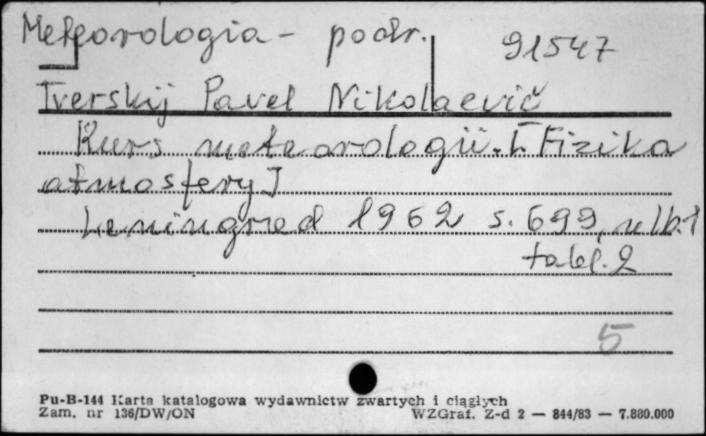 Meteorologia - podr. 91547
Tverskij Pavel Nikolaevič
Kurs meteorologii. [Fizika
atmosfery]
Leningrad 1962 s. 699,
tabl. 2
5
Pu-B-144 Karta katalogowa wydawnictw zwartych i ciągłych
Zam. nr 136/DW/ON WZGraf. Z-d 2 — 844/83 — 7.880.000